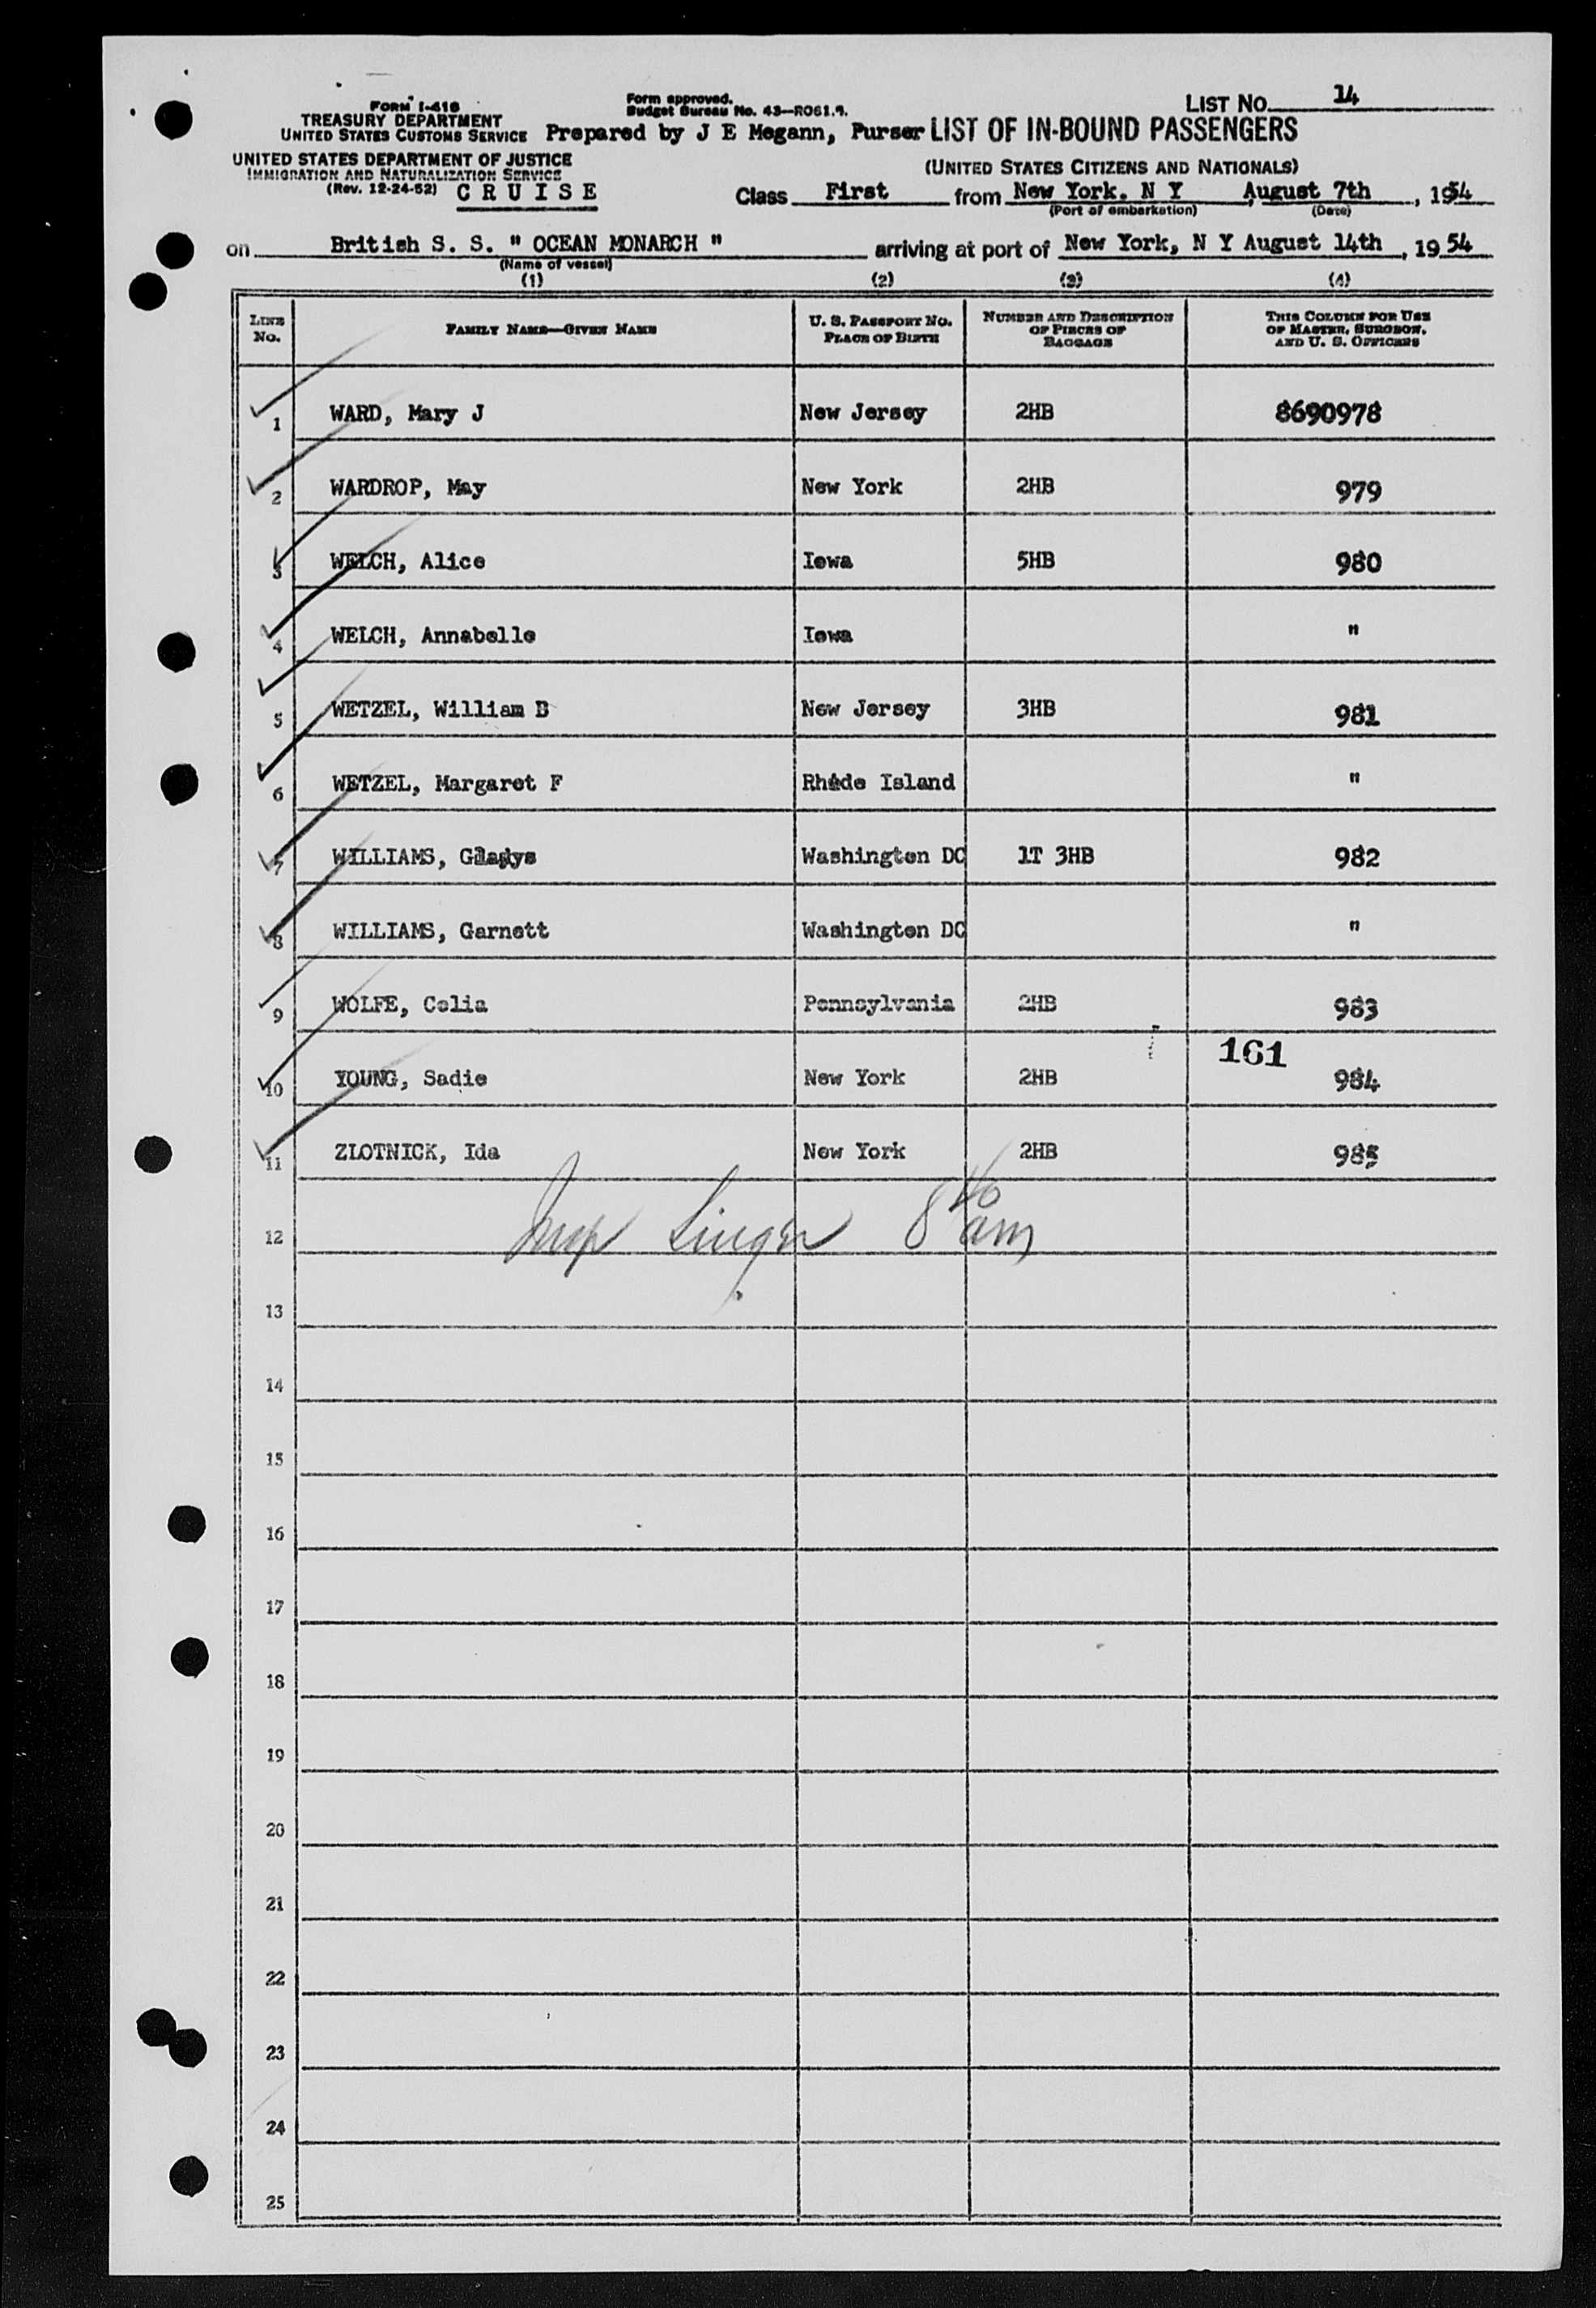 FORM I-418
TREASURY DEPARTMENT
UNITED STATES CUSTOMS SERVICE
UNITED STATES DEPARTMENT OF JUSTICE
IMMIGRATION AND NATURALIZATION SERVICE
(Rev. 12-24-52) C R U I S E
Form approved.
Budget Bureau No. 43—R061.4.
Prepared by J E Megann, Purser
LIST NO. 14
LIST OF IN-BOUND PASSENGERS
(UNITED STATES CITIZENS AND NATIONALS)
Class First from New York. N Y August 7th, 1954
(Port of embarkation) (Date)
on British S. S. " OCEAN MONARCH " arriving at port of New York, N Y August 14th, 1954
(Name of vessel)
(1) (2) (3) (4)
LINE No. FAMILY NAME—GIVEN NAME U. S. PASSPORT NO. PLACE OF BIRTH NUMBER AND DESCRIPTION OF PIECES OF BAGGAGE THIS COLUMN FOR USE OF MASTER, SURGEON, AND U. S. OFFICERS
1 WARD, Mary J New Jersey 2HB 8690978
2 WARDROP, May New York 2HB 979
3 WELCH, Alice Iowa 5HB 980
4 WELCH, Annabelle Iowa "
5 WETZEL, William B New Jersey 3HB 981
6 WETZEL, Margaret F Rhode Island "
7 WILLIAMS, Gladys Washington DC 1T 3HB 982
8 WILLIAMS, Garnett Washington DC "
9 WOLFE, Celia Pennsylvania 2HB 983
161
10 YOUNG, Sadie New York 2HB 984
11 ZLOTNICK, Ida New York 2HB 985
12 Insp Singer 8 40 am
13
14
15
16
17
18
19
20
21
22
23
24
25